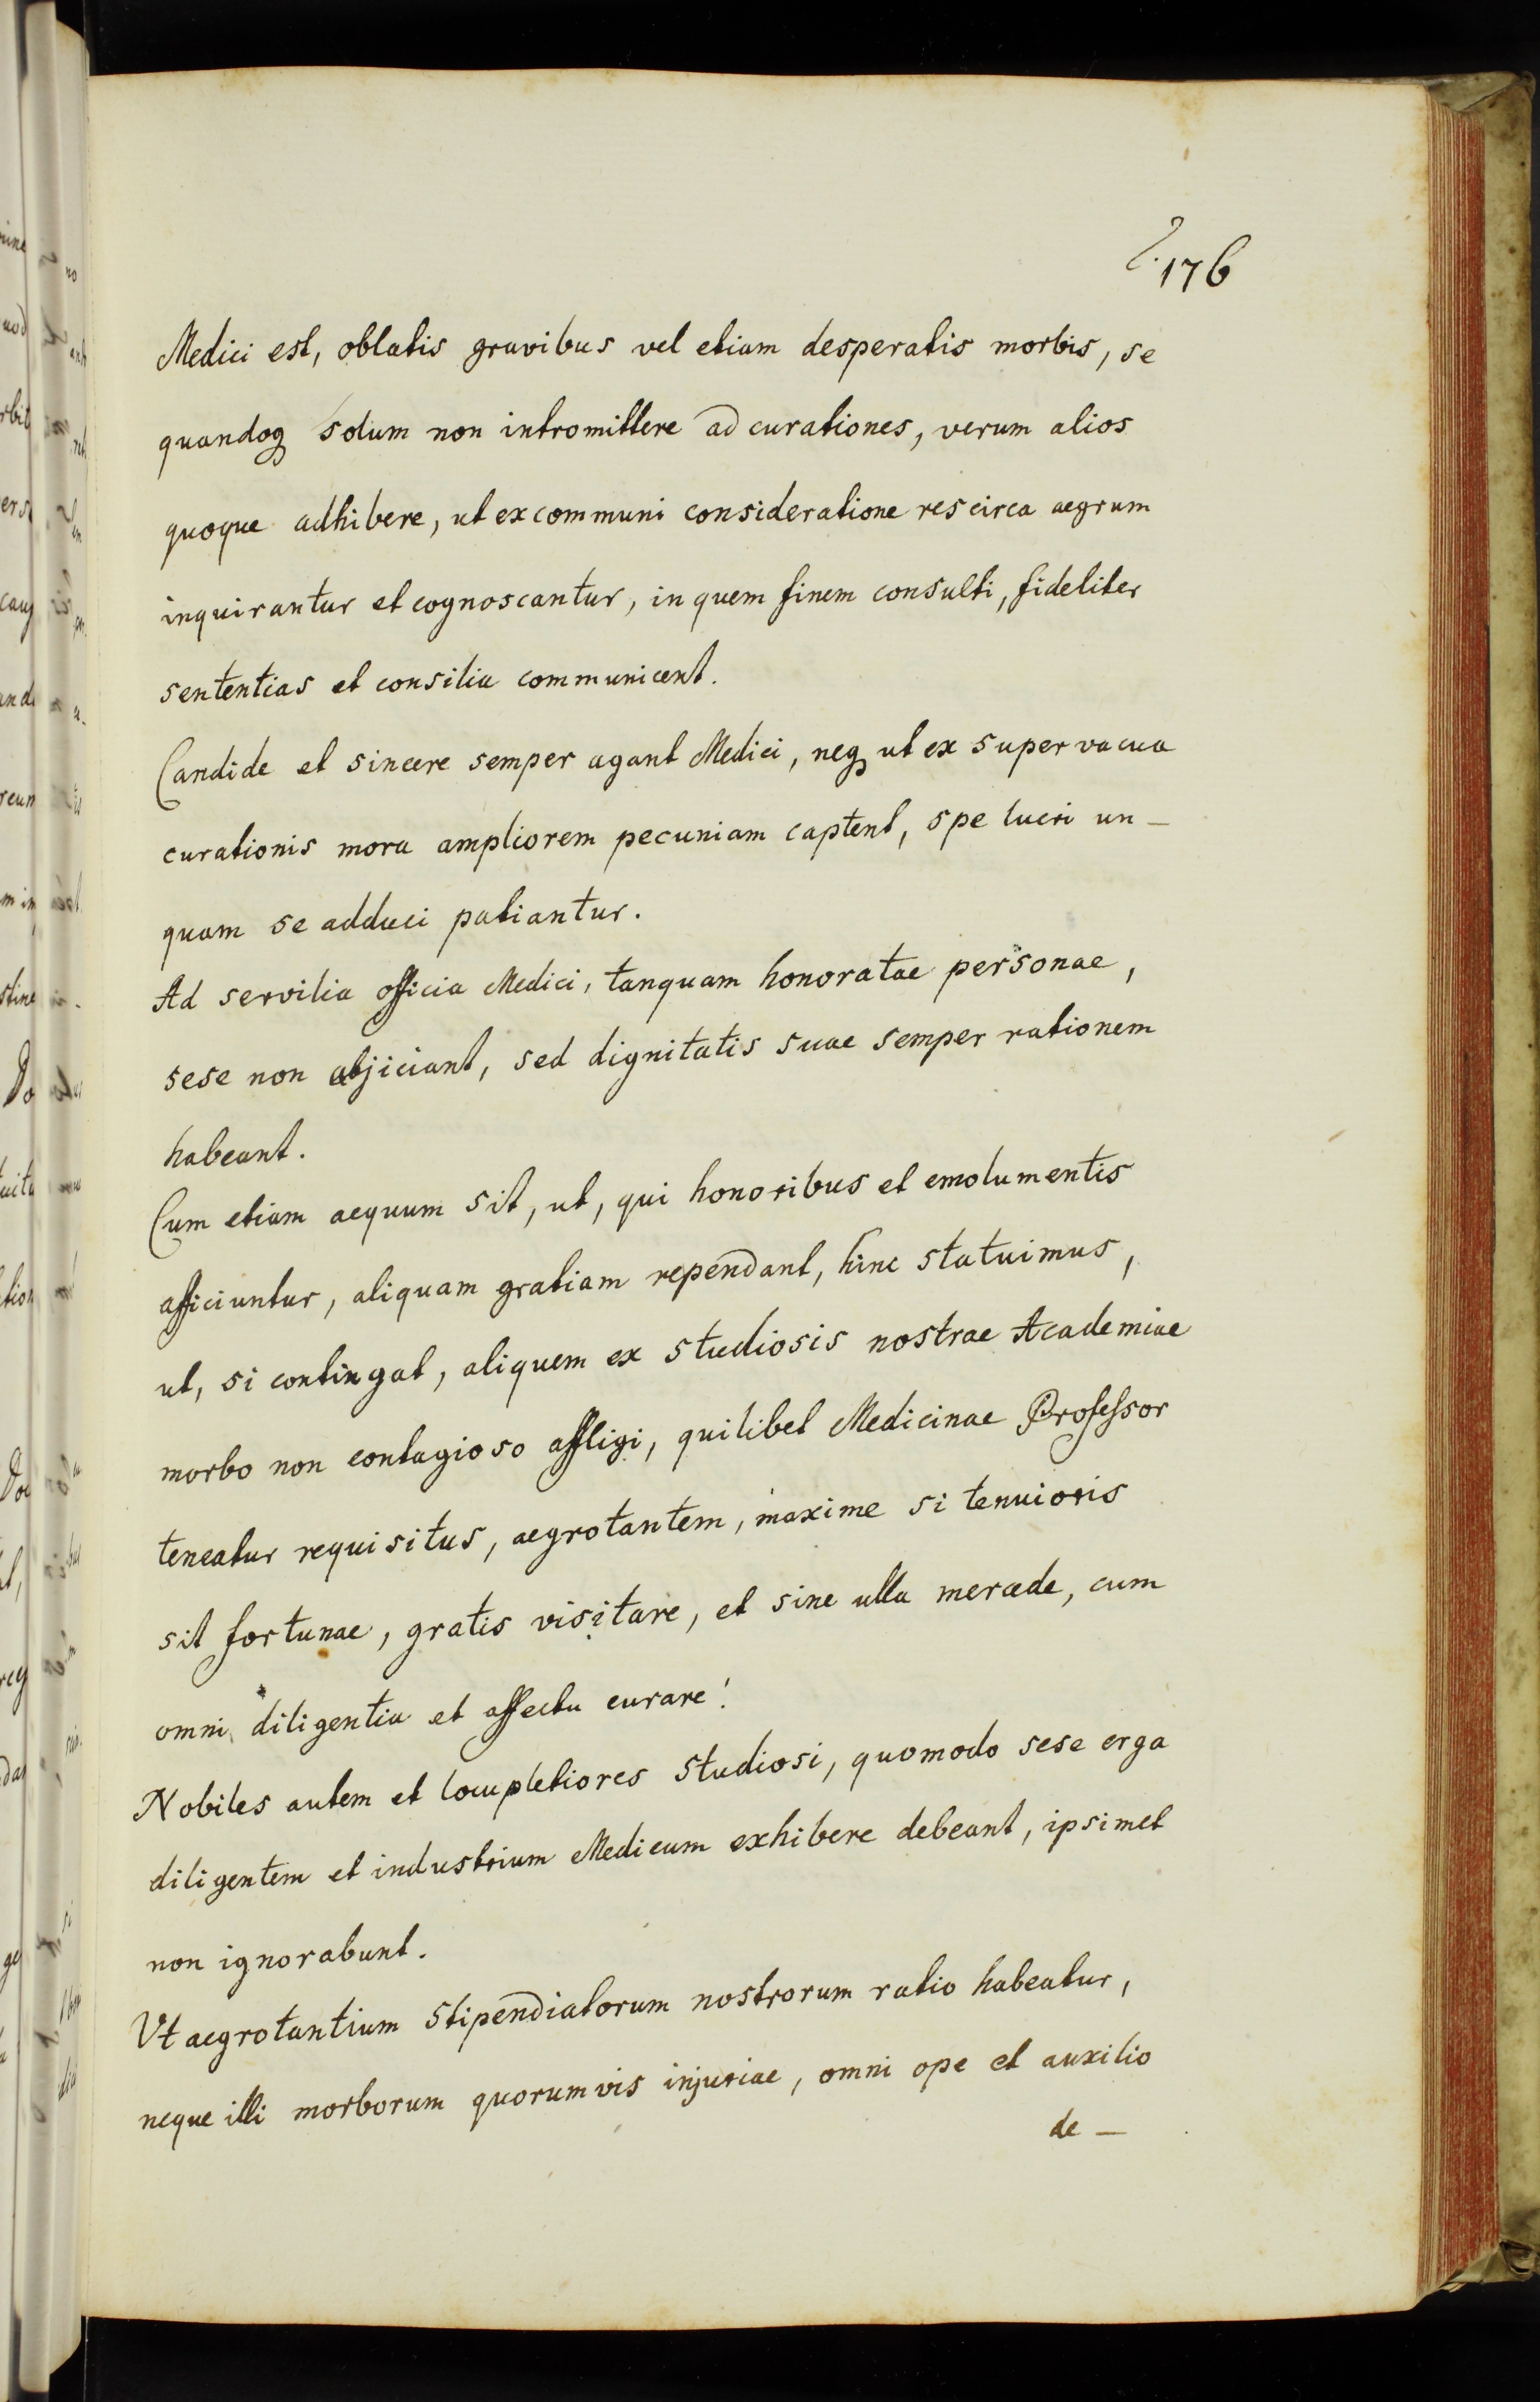 176
Medici est, oblatis gravibus vel etiam desperatis morbis, se
quandoq solum non intromittere ad curationes, verum alios
quoque adhibere, ut ex communi consideratione res circa aegrum
inquirantur et cognoscantur, in quem finem consulti, fideliter
sententias et consilia communicent.
Candide et sincere semper agant Medici, neq ut ex supervacua
curationis mora ampliorem pecuniam captent, spe lucri un-
quam se adduci patiantur.
Ad servilia officia Medici, tanquam honoratae personae,
sese non abjiciant, sed dignitatis suae semper rationem
habeant.
Cum etiam aequum sit, ut, qui honoribus et emolumentis
afficiuntur, aliquam gratiam rependant, hinc statuimus,
ut, si contingat, aliquem ex studiosis nostrae Academiae
morbo non contagioso affligi, quilibet Medicinae Professor
teneatur requisitus, aegrotantem, maxime si tenuioris
sit fortunae, gratis visitare, et sine ulla mercede, cum
omni diligentia et affectu curare!
Nobiles autem et locupletiores studiosi, quomodo sese erga
diligentem et industrium Medicum exhibere debeant, ipsimet
non ignorabunt.
Vt aegrotantium Stipendiatorum nostrorum ratio habeatur,
neque illi morborum quorumvis injuriae, omni ope et auxilio
de-